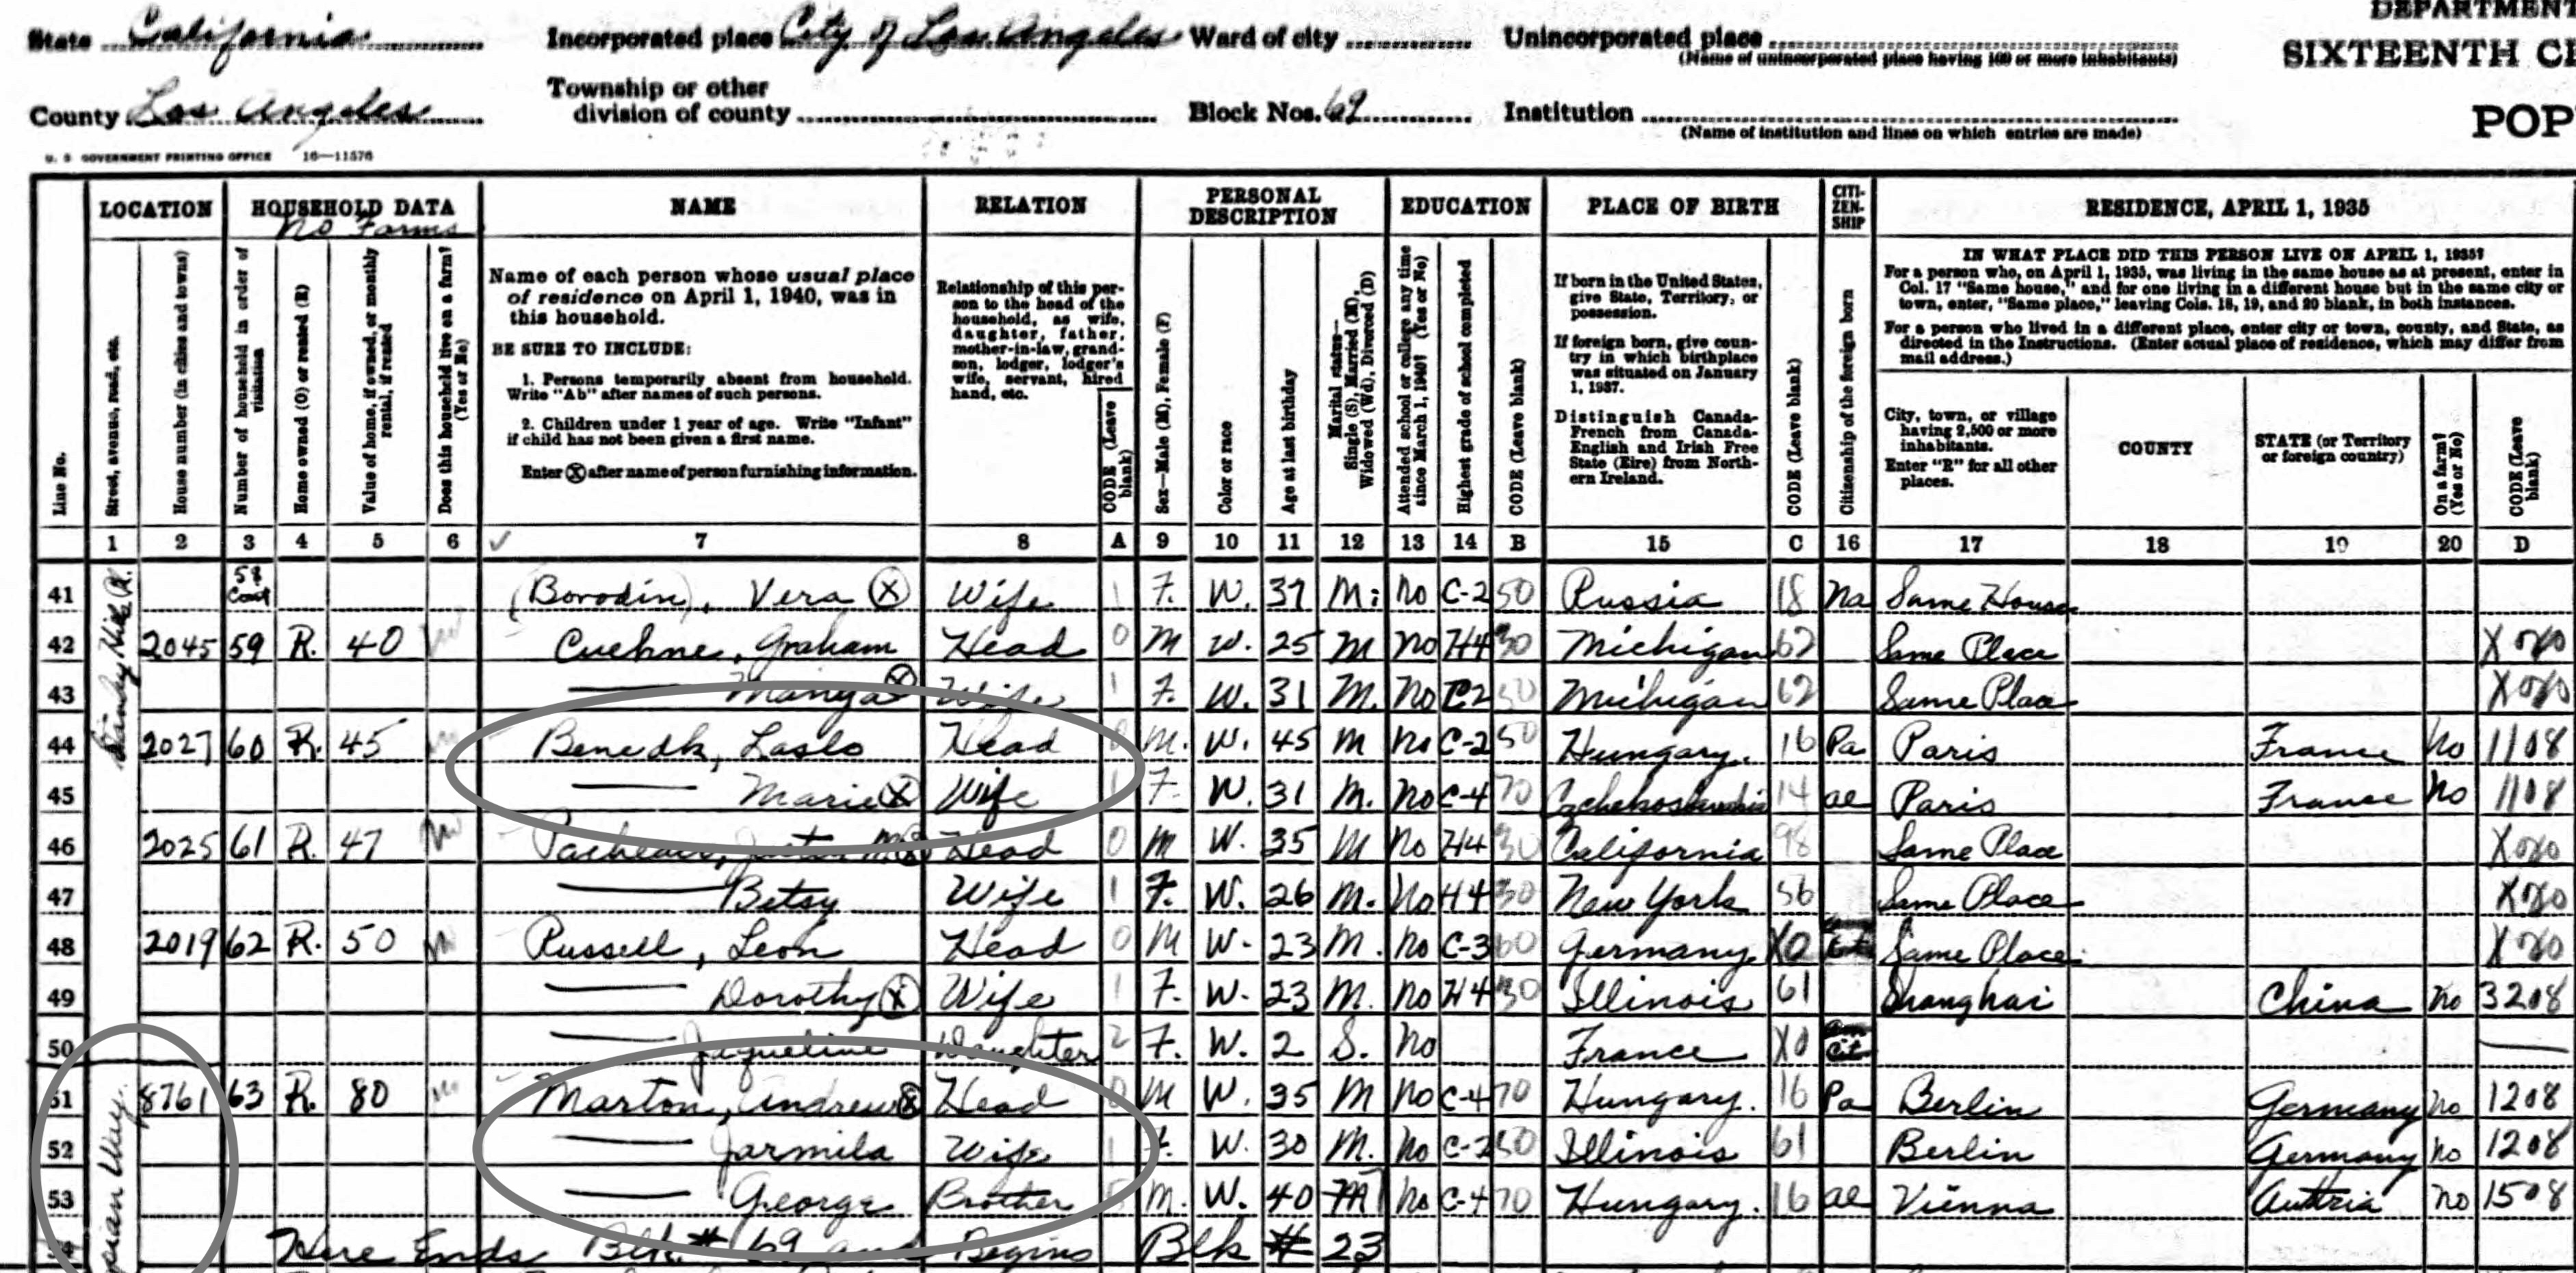 DEPARTMENT
State California Incorporated place City of Los Angeles Ward of city Unincorporated place
(Name of unincorporated place having 100 or more inhabitants)
SIXTEENTH CE
County Los Angeles Township or other division of county Block Nos. 69 Institution
(Name of institution and lines on which entries are made)
POP
U. S GOVERNMENT PRINTING OFFICE 16—11576
LOCATION HOUSEHOLD DATA NAME RELATION PERSONAL DESCRIPTION EDUCATION PLACE OF BIRTH CITI-ZEN-SHIP RESIDENCE, APRIL 1, 1935
No Farms
Line No.
Street, avenue, road, etc.
House number (in cities and towns)
Number of household in order of visitation
Home owned (O) or rented (R)
Value of home, if owned, or monthly rental, if rented
Does this household live on a farm? (Yes or No)
Name of each person whose usual place
of residence on April 1, 1940, was in
this household.
BE SURE TO INCLUDE:
1. Persons temporarily absent from household.
Write "Ab" after names of such persons.
2. Children under 1 year of age. Write "Infant"
if child has not been given a first name.
Enter Ⓧ after name of person furnishing information.
Relationship of this per-
son to the head of the
household, as wife,
daughter, father,
mother-in-law, grand-
son, lodger, lodger's
wife, servant, hired
hand, etc.
CODE (Leave blank)
Sex—Male (M), Female (F)
Color or race
Age at last birthday
Marital status—
Single (S), Married (M),
Widowed (Wd), Divorced (D)
Attended school or college any time since March 1, 1940? (Yes or No)
Highest grade of school completed
CODE (Leave blank)
If born in the United States,
give State, Territory, or
possession.
If foreign born, give coun-
try in which birthplace
was situated on January
1, 1937.
Distinguish Canada-
French from Canada-
English and Irish Free
State (Eire) from North-
ern Ireland.
CODE (Leave blank)
Citizenship of the foreign born
IN WHAT PLACE DID THIS PERSON LIVE ON APRIL 1, 1935?
For a person who, on April 1, 1935, was living in the same house as at present, enter in
Col. 17 "Same house," and for one living in a different house but in the same city or
town, enter, "Same place," leaving Cols. 18, 19, and 20 blank, in both instances.
For a person who lived in a different place, enter city or town, county, and State, as
directed in the Instructions. (Enter actual place of residence, which may differ from
mail address.)
City, town, or village
having 2,500 or more
inhabitants.
Enter "R" for all other
places.
COUNTY
STATE (or Territory
or foreign country)
On a farm? (Yes or No)
CODE (Leave blank)
1 2 3 4 5 6 7 8 A 9 10 11 12 13 14 B 15 C 16 17 18 19 20 D
41 58 Cont (Borodin), Vera Ⓧ Wife 1 F. W. 37 M. No C-2 50 Russia 18 Na Same House
42 2045 59 R. 40 Cuehne, Graham Head 0 M W. 25 M No H4 30 Michigan 62 Same Place X0X0
43 Manya Ⓧ Wife 1 F. W. 31 M. No C2 50 Michigan 62 Same Place X0X0
44 2027 60 R. 45 Benedk, Laslo Head 0 M. W. 45 M No C-2 50 Hungary. 16 Pa Paris France No 1108
45 Marie Ⓧ Wife 1 F. W. 31 M. No C-4 70 14 al Paris France No 1108
46 2025 61 R. 47 Head 0 M W. 35 M No H4 30 California 98 Same Place X0X0
47 Betsy Wife 1 F. W. 26 M. No H4 30 New York 56 Same Place X0X0
48 2019 62 R. 50 Russell, Leon Head 0 M W. 23 M. No C-3 60 Germany X0 Same Place X0X0
49 Dorothy Ⓧ Wife 1 F. W. 23 M. No H4 30 Illinois 61 Shanghai China No 3208
50 Jaqueline Daughter 2 F. W. 2 S. No France X0 Am Cit
51 8761 63 R. 80 Marton, Andrew Ⓧ Head 0 M W. 35 M No C-4 70 Hungary. 16 Pa Berlin Germany No 1208
52 Jarmila Wife 1 F. W. 30 M. No C-2 50 Illinois 61 Berlin Germany No 1208
53 George Brother 5 M. W. 40 M No C-4 70 Hungary. 16 al Vienna Austria No 1508
54 Here Ends Blk. # 69 and Begins Blk # 23